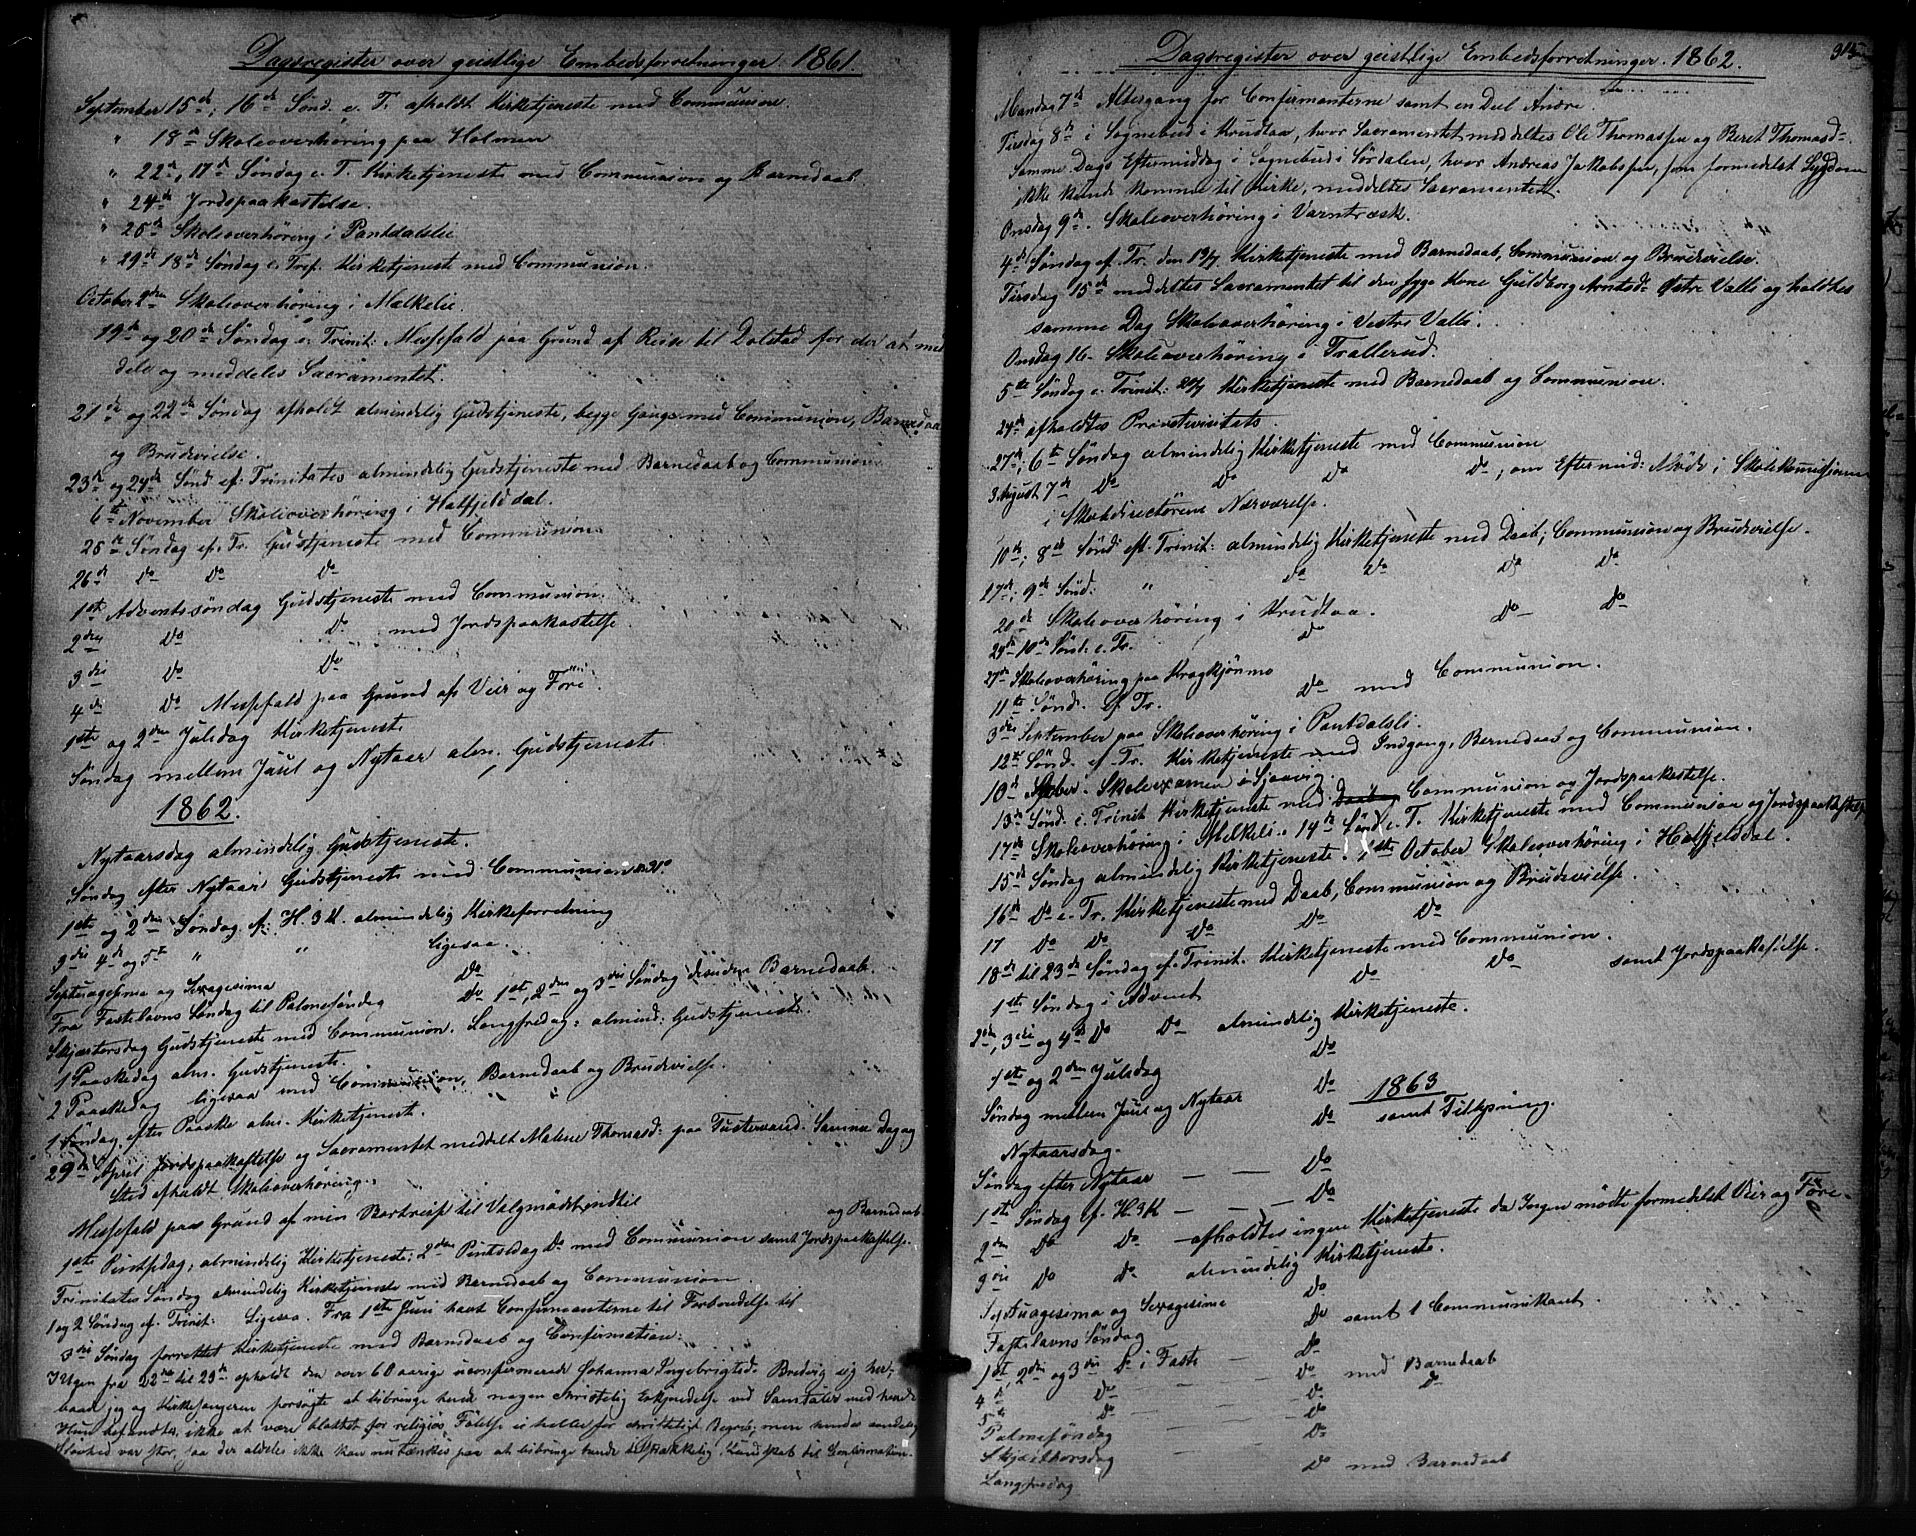 Dagsregister over geistlige Embedsforretninger 1861.
September 15de, 16de Sønd. e. T. afholdt Kirketjeneste med Communion.
" 18de Skoleoverhøring paa Holmen
" 22de, 17de Søndag e. T. Kirketjeneste med Communion og Barnedaab.
" 24de Jordspaakastelse.
" 25de Skoleoverhøring i Pantdalslie
" 29de 18de Søndag e. Tref. Kirketjeneste med Communion.
October 2den Skoleoverhøring i Mælkelie.
19de og 20de Søndag e. Trinit: Messefald paa Grund af Reise til Dolstad for der at med
dele og meddeles Sacramentet.
21de og 22de Søndag afholdt almindelig Gudstjeneste, begge Gange med Communion, Barnedaab
og Brudevielse.
23de og 24de Sønd ef. Trinitatis almindelig Gudstjeneste med Barnedaab og Communion
6te November Skoleoverhøring i Hatfjelddal.
25de Søndag ef. Tr. Gudstjeneste med Communion.
26de Do Do Do
1ste Adventssøndag Gudstjeneste med Communion.
2den Do Do med Jordspaakastelse
3die Do Do
4de Do Messefald paa Grund af Veir og Føre.
1ste og 2den Juledag Kirketjeneste
Søndag mellem Juul og Nytaar alm. Gudstjeneste
1862.
Nytaarsdag almindelig Gudstjeneste.
Søndag efter Nytaar Gudstjeneste med Communion
1ste og 2den Søndag ef. H. 3 K. almindelig Kirkeforretning
3die 4de og 5te " " ligesaa.
Septuagesima og Sexagesima Do
Fra Fastelavns Søndag til Palmesøndag Do 1ste, 2den og 3die Søndag desuden Barnedaab.
Skjærtorsdag Gudstjeneste med Communion. Langfredag: almind: Gudstjeneste.
1 Paaskedag alm. Gudstjeneste.
2 Paaskedag ligesaa med Communion, Barnedaab og Brudevielse.
1 Søndag efter Paaske alm. Kirketjeneste.
29de April Jordspaakastelse og Sacramentet meddelt Malene Thomasd: paa Tustervand. Samme Dag og
Sted afholdt Skoleoverhøring.
Messefald paa Grund af min Bortreise til Valgmøde og Barnedaab
1ste Pintsedag, almindelig Kirketjeneste; 2den Pintsedag Do med Communion samt Jordspaakastelse.
Trinitatis Søndag almindelig Kirketjeneste med Barnedaab og Communion
1 og 2 Søndag ef. Trinit: Ligesaa. Fra 1ste Juni havt Confirmanterne til Forberedelse til
3die Søndag forrettet Kirketjeneste med Barnedaab og Confirmation.
I Ugen fra 22de til 29de opholdt den over 60 aarige uconfirmerede Johanna Ingebrigtsd. Bredvig sig her,
hvor jeg og Kirkesangeren forsøgte at bibringe hende nogen christelig Erkjendelse ved Samtaler med hende
Hun befandtes ikke at være blottet for religiøs Følelse ei heller for christelige Begreb, men hendes aandelig
Sløvhed var stor, saa der aldeles ikke kan væretænkes paa at bibringe hende tilstrækkelig Kundskab til Confirmation.
Dagsregister over geistlige Embedsforretninger. 1862. 315
Mandag 7de Altergang for Confirmanterne samt en Deel Andre.
Tirsdag 8de i Sognebud i Krudtaa, hvor Sacramentet meddeltes Ole Thomassen og Beret Thomasd=
Samme Dags Eftermiddag i Sognebud i Sørdalen, hvor Andreas Jakobssen, som formedelst Sygdom
ikke kunde komme til Kirke, meddeltes Sacramentet.
Onsdag 9de. Skoleoverhøring i Varntræsk.
4de Søndag ef. Tr. den 13/7 Kirketjeneste med Barnedaab, Communion og Brudevielse.
Tirsdag 15de meddeltes Sacramentet til den syge Kone Guldborg Arntsd= Østre Valli og holdtes
samme Dag Skoleoverhøring i Vestre Valli.
Onsdag 16. Skoleoverhøring i Trallerud.
5te Søndag e. Trinit: 20/7 Kirketjeneste med Barnedaab og Communion.
24de afholdtes Provstevisitats.
27de, 6te Søndag almindelig Kirketjeneste med Communion
3 August 7de Do Do Do Do, om Eftermid: Møde i Skolekommissionen
i Skoledirectørens Nærværelse.
10de, 8de Sønd. eft. Trinit: almindelig Kirketjeneste med Daab, Communion og Brudevielse.
17de, 9de Sønd. " Do Do Do Do
20de Skoleoverhøring i Krudtaa.
24de 10de Sønd. e. Tr. Do Do Do
27de Skoleoverhøring paa Kragkjønmo
11te Sønd. ef. Tr. Do med Communion.
3die September paa Skoleoverhøring i Pantdalsli.
12te Sønd. ef. Tr. Kirketjeneste med Indgang, Barnedaab og Communion.
10de Skoleexamen i Sjaavig.
13de Sønd. e. Trinit Kirketjeneste med Daab Communion og Jordspaakastelse.
17de Skoleoverhøring i Mælkeli. 14de Sønd. e. T. Kirketjeneste med Communion og Jordspaakastelse
15de Søndag almindelig Kirketjeneste. 1ste October Skoleoverhøring i Hatfjelddal.
16de Do e. Tr. Kirketjeneste med Daab, Communion og Brudevielse.
17 Do Do Do Do Do
18de til 23de Søndag ef. Trinit. Kirketjeneste med Communion.
1ste Søndag i Advent Do Do samt Jordspaakastelse.
2den, 3die og 4de Do Do almindelig Kirketjeneste.
1ste og 2den Juledag Do
Søndag mellem Juul og Nytaar Do
1863
Nytaarsdag. Do samt Tilkjsning.
Søndag efter Nytaar Do
1ste Søndag ef. H. 3 K Do
2den Do Do afholdtes ingen Kirketjeneste da Ingen mødte formedelst Veir og Føre.
3die Do Do almindelig Kirketjeneste.
Septuagesima og Sexagesima Do
Fastelavns Søndag Do samt 1 Communikant.
1ste, 2den og 3die Do i Faste Do
4de Do Do med Barnedaab
5te Do Do Do
Palmesøndag Do
Skjærthorsdag Do
Langfredag Do med Barnedaab